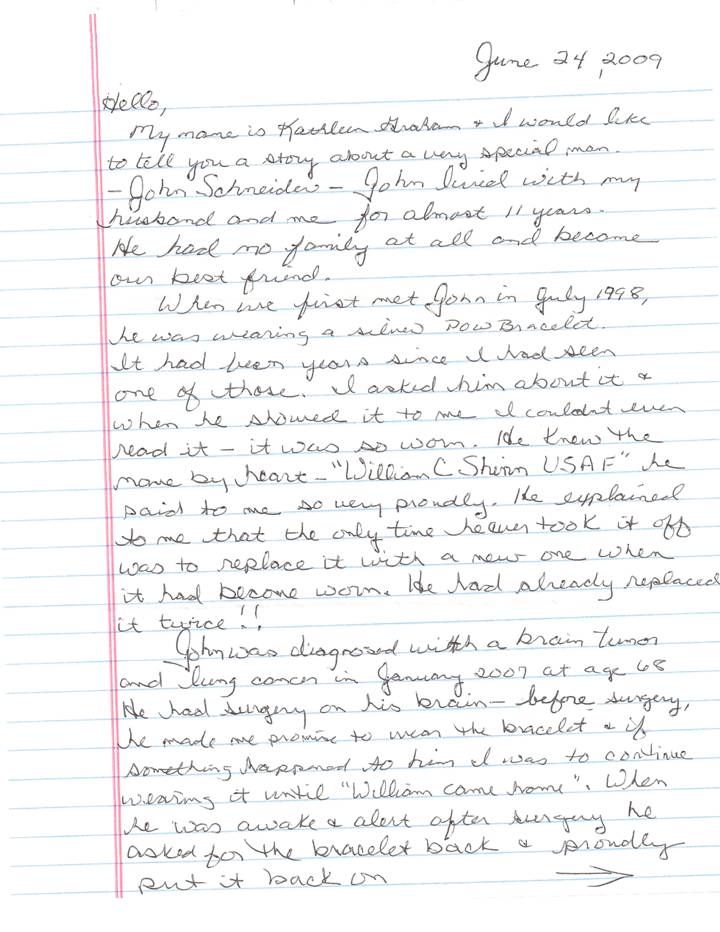 June 24, 2009
Hello,
My name is Kathleen Graham & I would like
to tell you a story about a very special man.
- John Schneider - John lived with my
husband and me for almost 11 years.
He had no family at all and become
our best friend.
When we first met John in July 1998,
he was wearing a silver POW Bracelet.
It had been years since I had seen
one of those. I asked him about it &
when he showed it to me I couldnt even
read it - it was so worn. He knew the
name by heart - "William C Shinn USAF" he
said to me so very proudly. He explained
to me that the only time he ever took it off
was to replace it with a new one when
it had become worn. He had already replaced
it twice!!
John was diagnosed with a brain tumor
and lung cancer in January 2007 at age 68
He had surgery on his brain - before surgery,
he made me promise to wear the bracelet & if
something happened to him I was to continue
wearing it until "William came home". When
he was awake & alert after surgery he
asked for the bracelet back & proudly
put it back on →